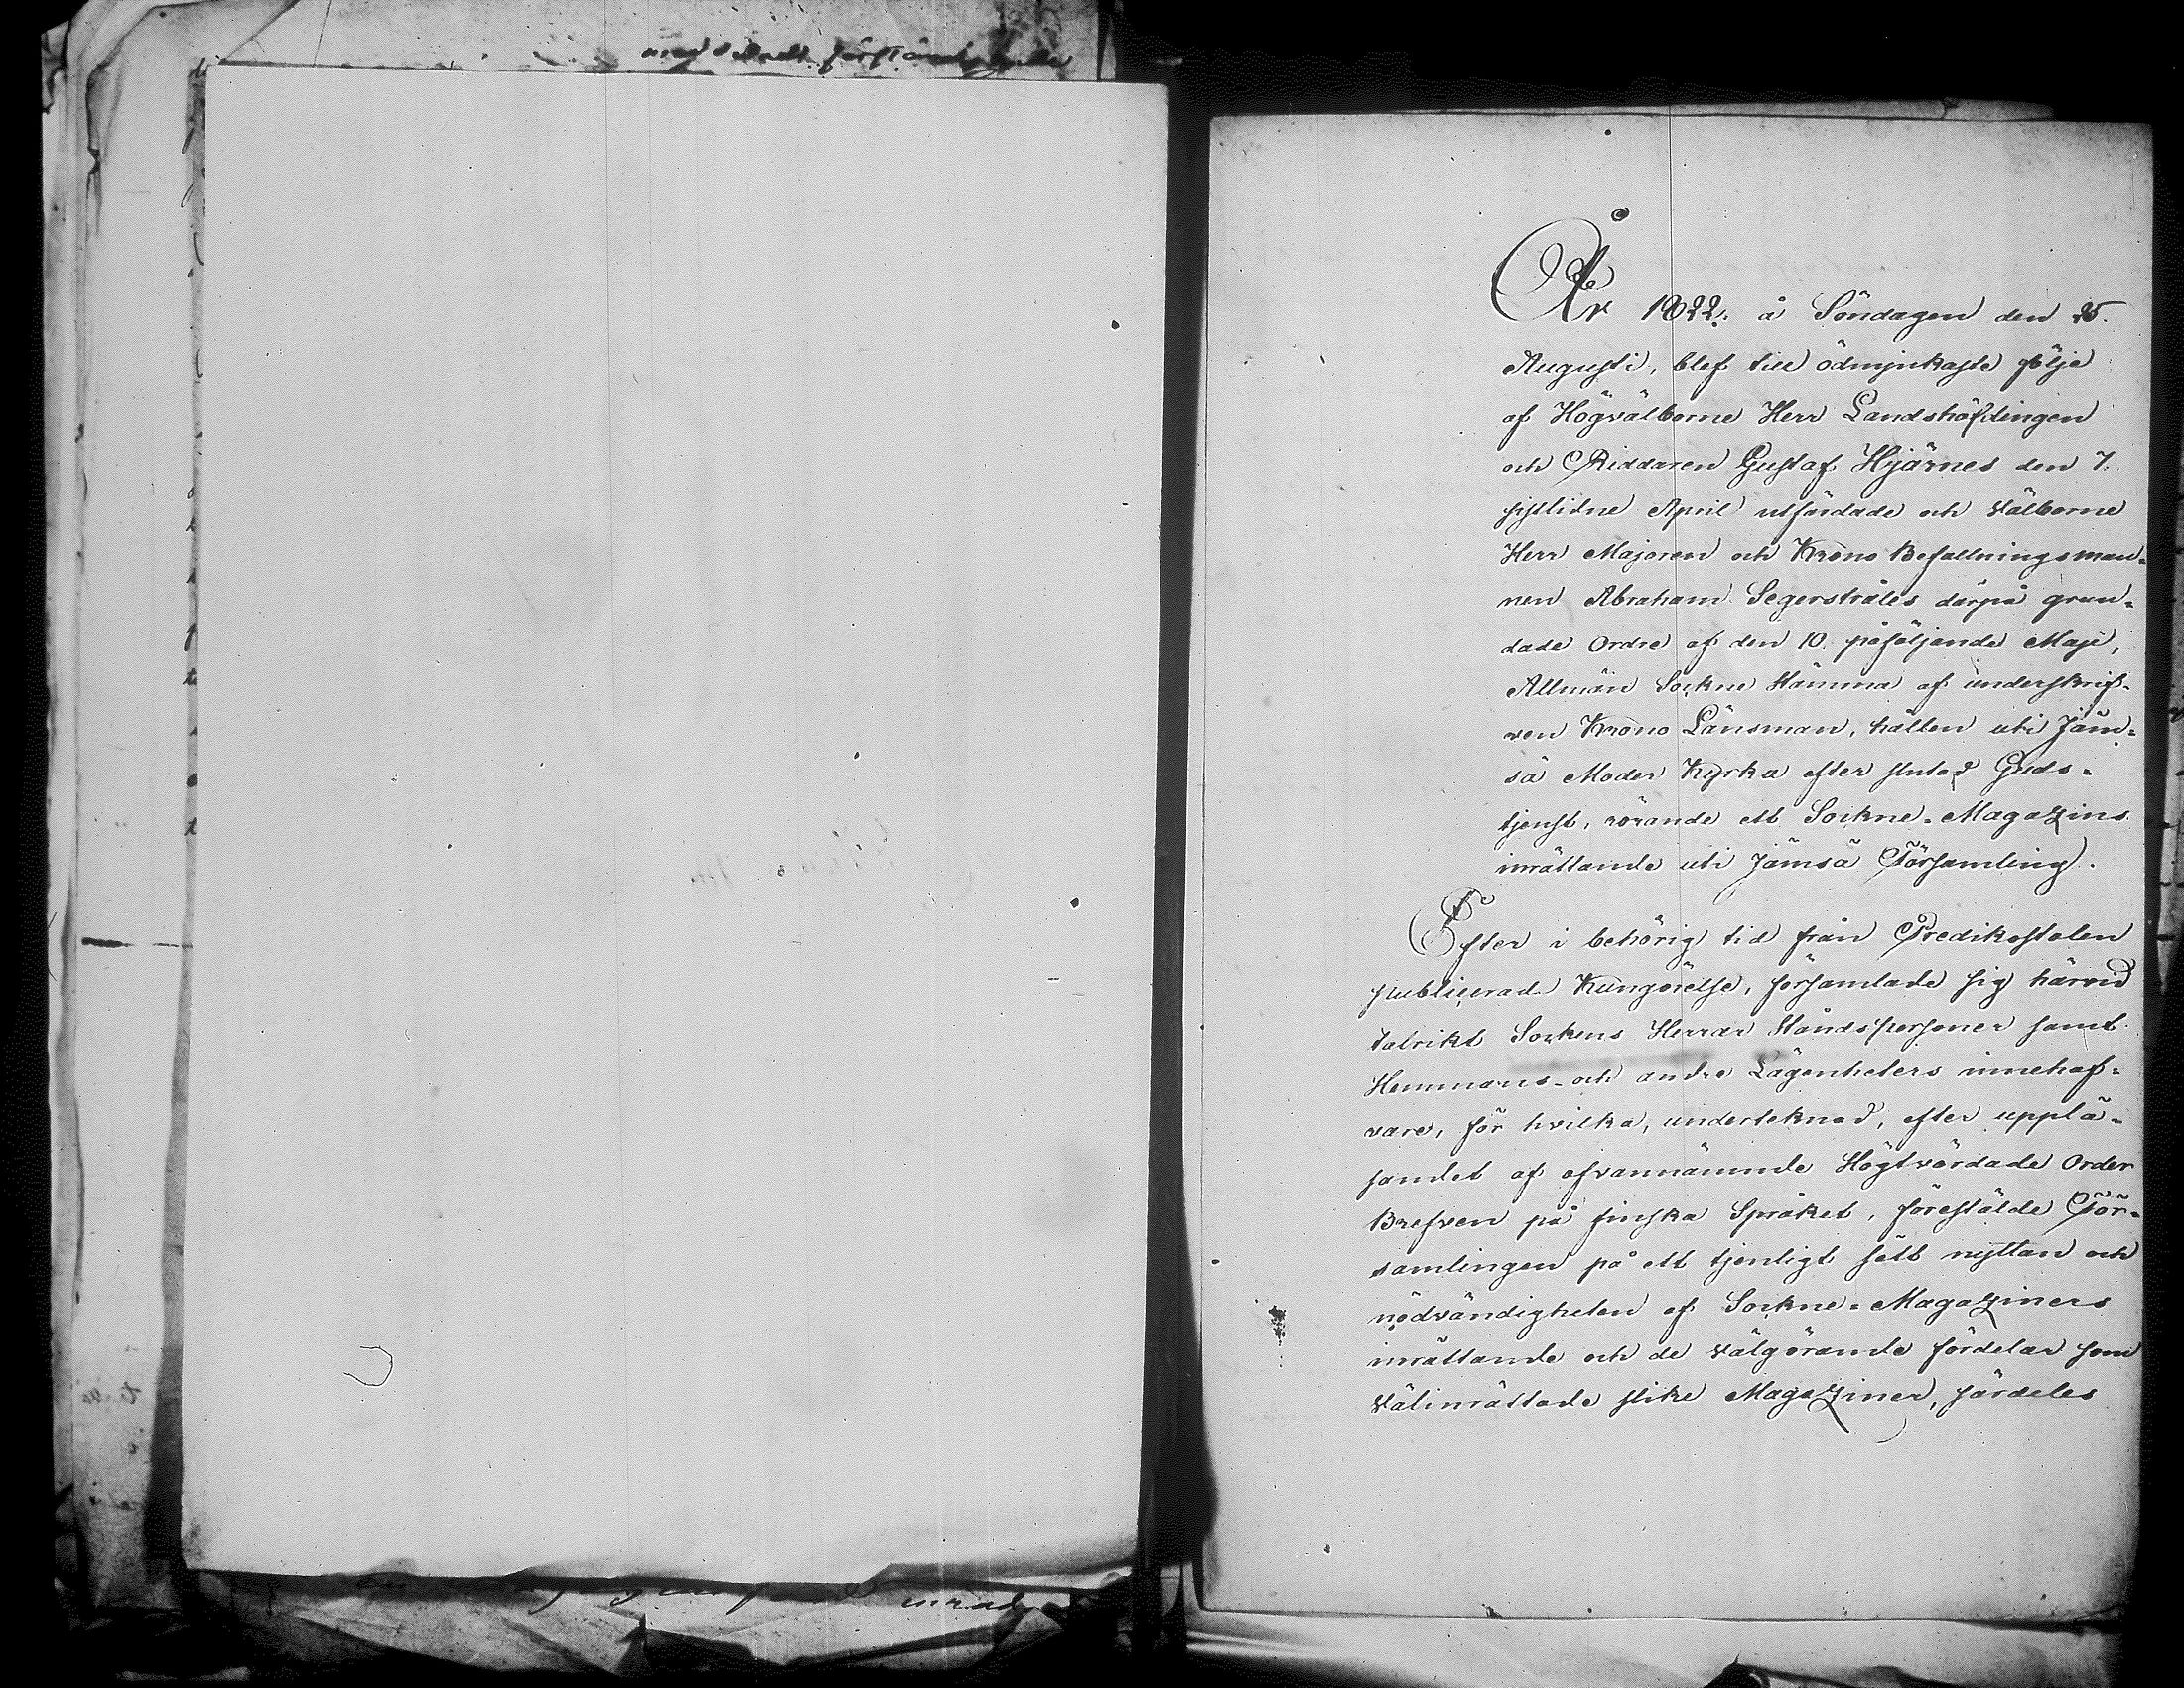 År 1822. å Söndagen den 25.
Augusti, blef till ödmjukaste följe
af Högvälborne Herr Landshöfdingen
och Riddaren Gustaf Hjärnes den 7.
sistlidne April utfärdade och Välborne
Herr Majoren och Krono Befallningsman-
nen Abraham Segerstråles därpå grun-
dade Ordre af den 10. påföljande Maji,
Allmän Sockne Stämma af underskrif-
ven Krono Länsman, hållen uti Jäm-
sä Moder Kyrka efter slutad Guds-
tjenst, rörande ett Sockne-Magazins
inrättande uti Jämsä Församling.
Efter i behörig tid från Predikostolen
publicerad Kungörelse, församlade sig härvid
talrikt Sockens Herrar Ståndspersoner samt
Hemmans- och andre Lägenheters innehaf-
vare, för hvilka, underteknad, efter upplä-
sandet af ofvannämnde Högtvördade Order
Brefven på finska Språket, förestälde För-
samlingen på ett tjenligt sätt nyttan och
nödvändigheten af Sockne-Magaziners
inrättande och de välgörande fördelar som
välinrättade slike Magaziner, särdeles